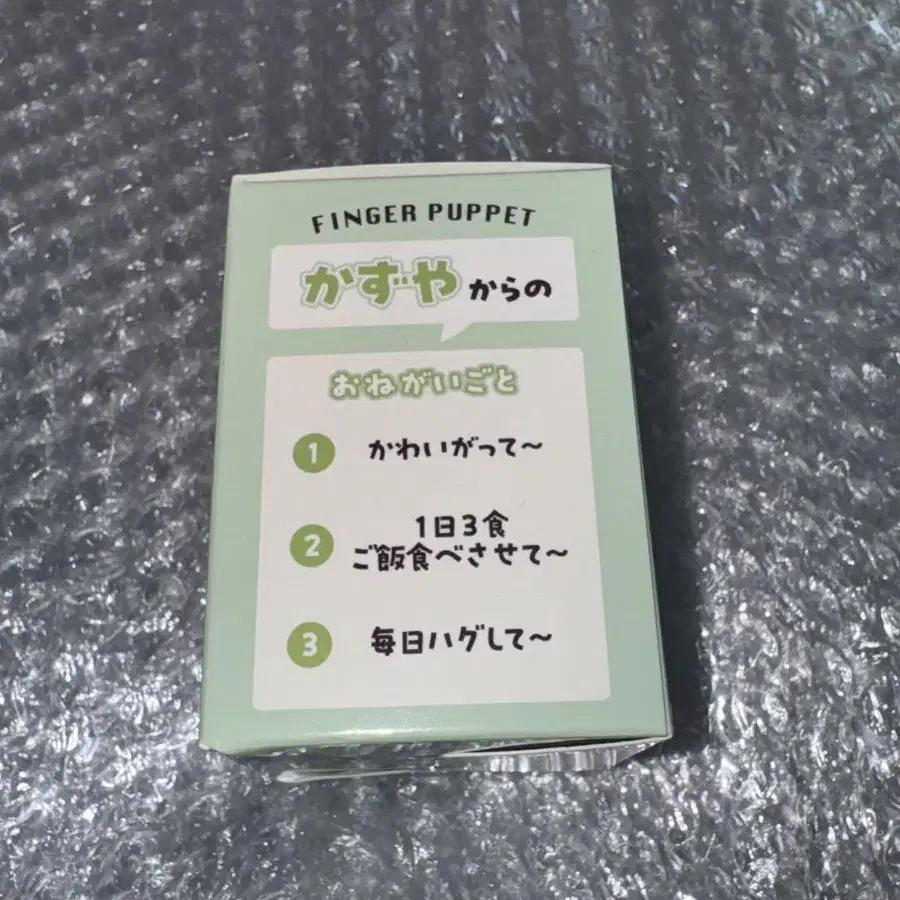 FINGER PUPPET
かずやからの
おねがいごと
1 かわいがって～
2 1日3食
ご飯食べさせて～
3 毎日ハグして～